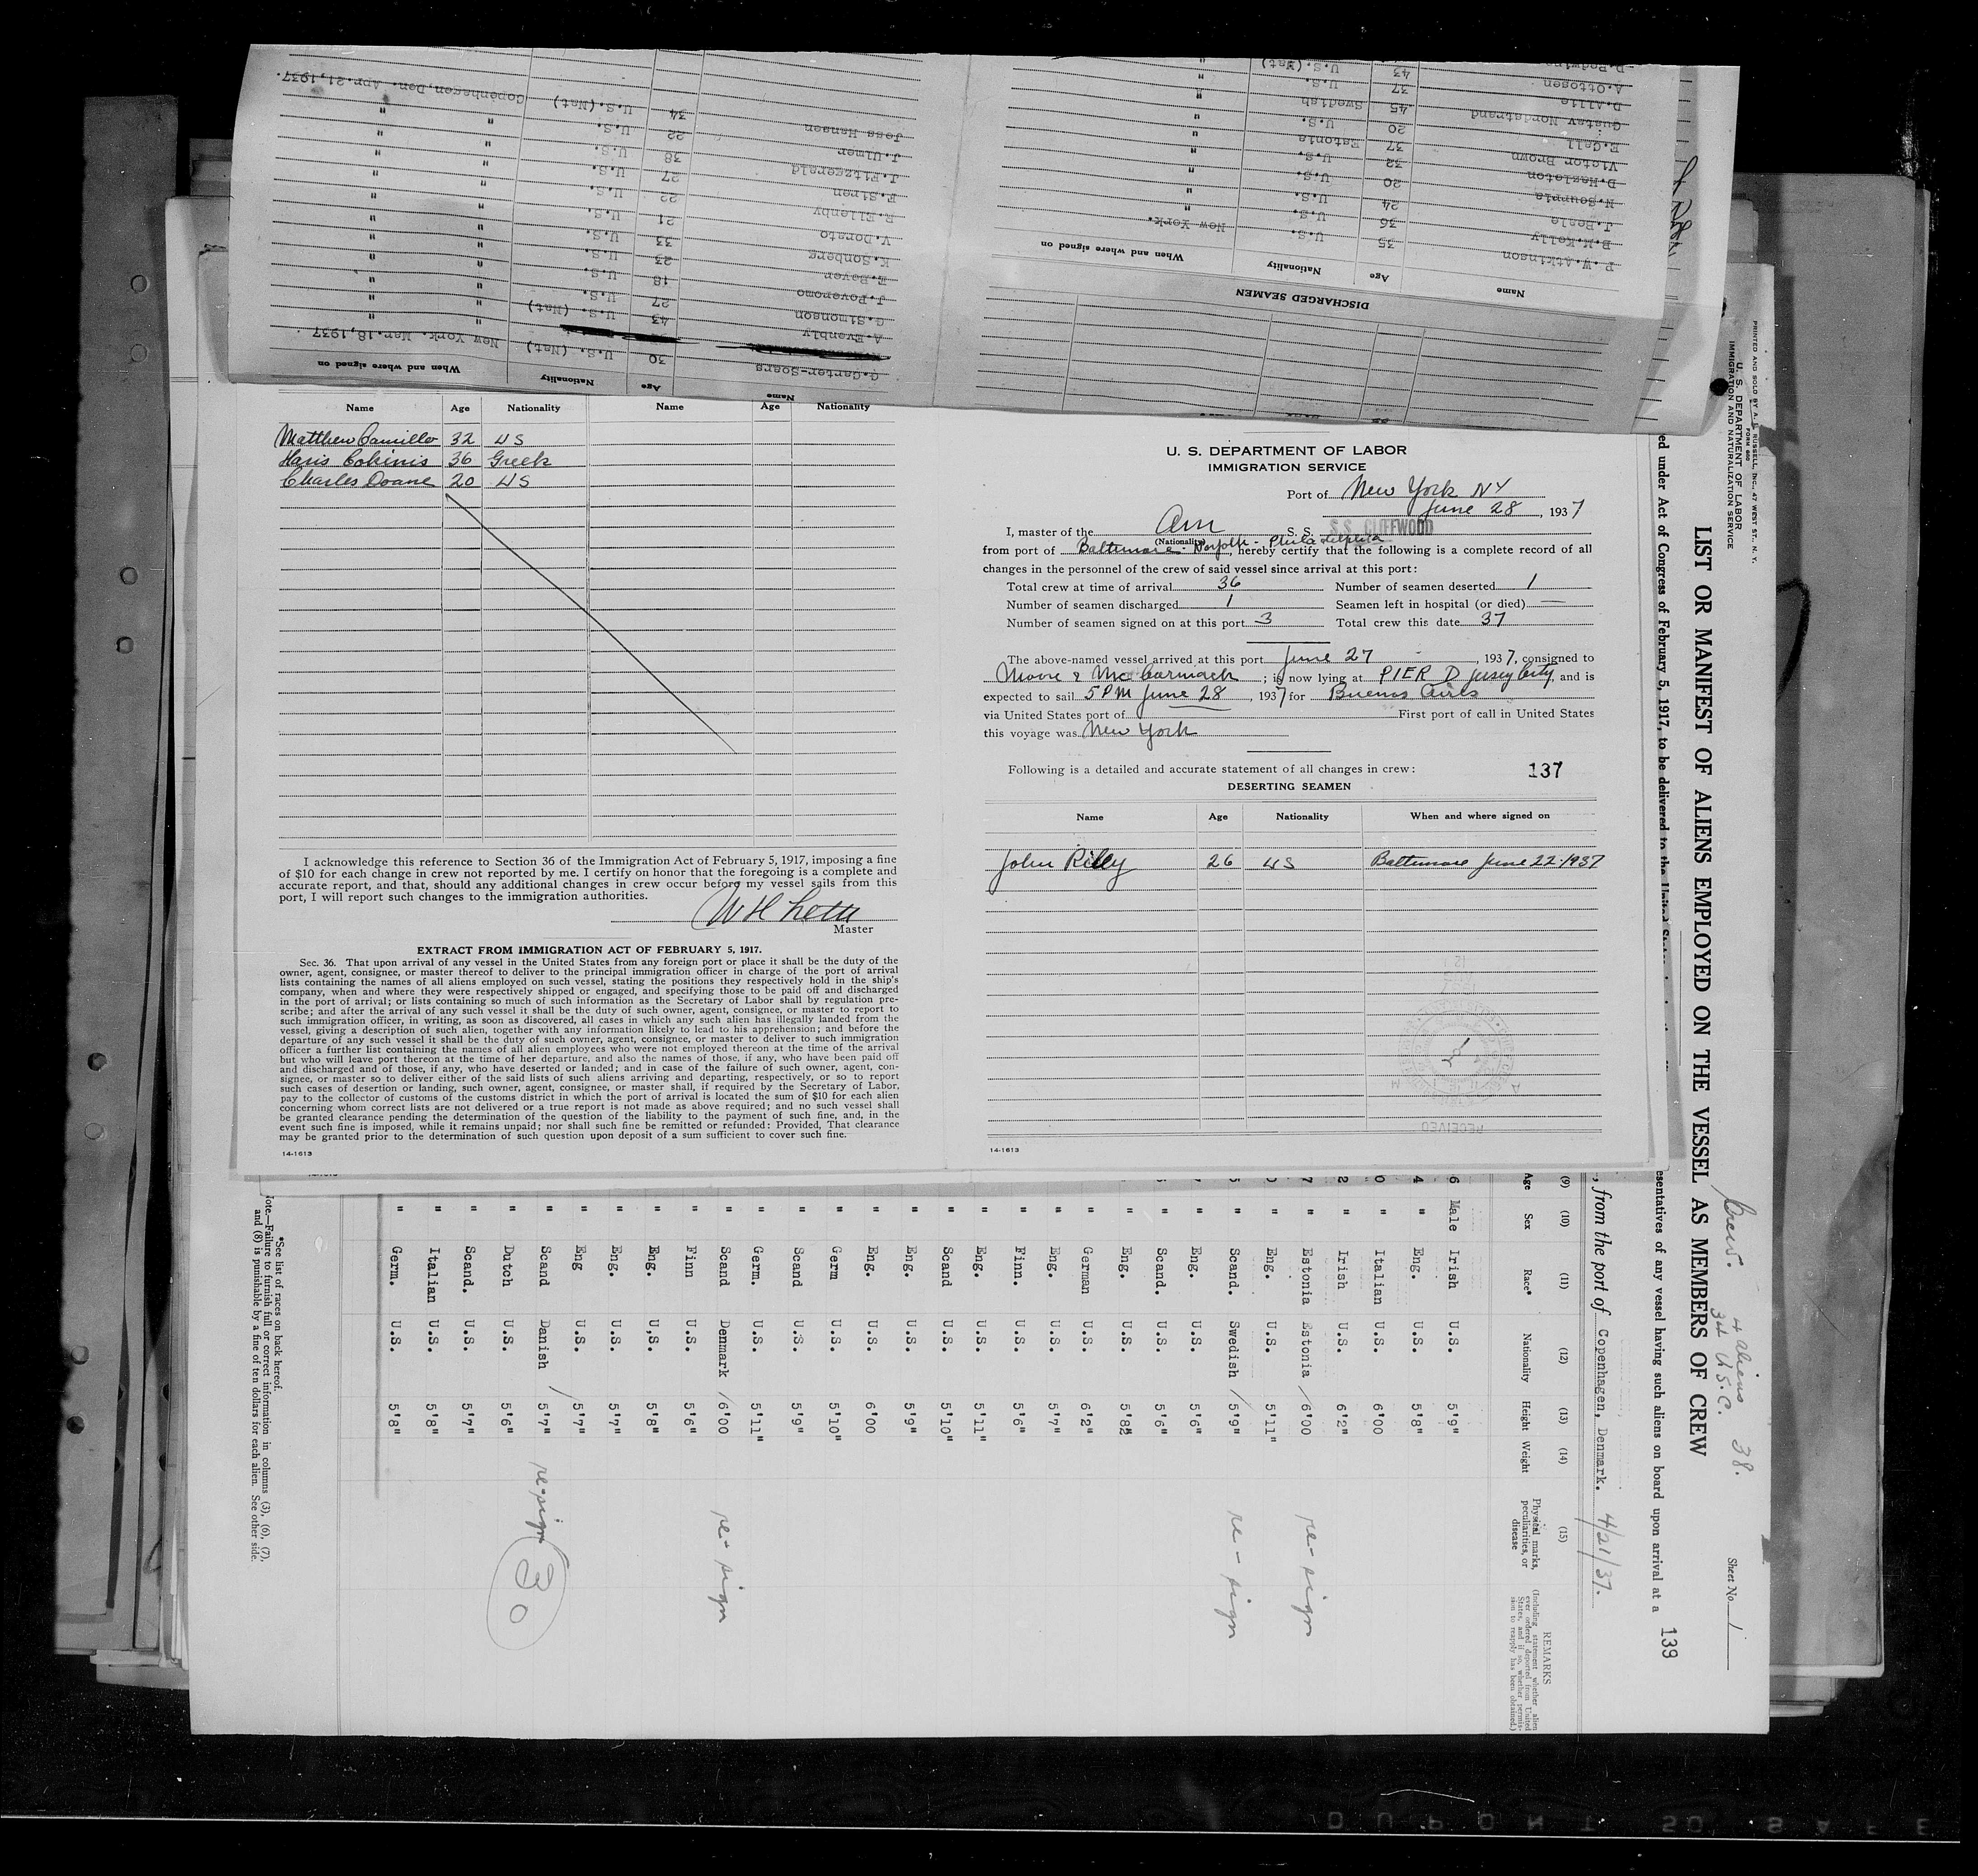 Copenhagen,Den. Apr.21,1937.
Jess Hansen 34 U.S.(Nat) "
J.Ulmer 22 U.S. "
J.Fitzgerald 38 U.S. "
F.Siren 27 U.S. "
R.Ellenby 22 U.S. "
V.Dorato 21 U.S. "
K.Sonberg 33 U.S. "
E.Bover 23 U.S. "
J.Poveromo 18 U.S. "
G.Simonson 27 U.S. "
A.Evenbly 43 U.S. (Nat) "
C.Carter-Soers 30 U.S. (Nat) New York. Mar.18,1937
Name Age Nationality When and where signed on
D.Rodwins 43 U.S.(Nat) "
A.Ottosen 37 U.S.
D.Allie 45 Swedish "
Gustav Nordstrand 20 U.S. "
E.Gell 37 Estonia "
Victor Brown 32 U.S. "
D.Hazleton 20 U.S. "
N.Souppia 24 U.S. "
J.Beale 36 U.S. "
B.M.Kelly 35 U.S. New York.
P.W.Atkinson
Name Age Nationality When and where signed on
DISCHARGED SEAMEN
Name Age Nationality Name Age Nationality
Matthew Camillo 32 US
Haris Cokinis 36 Greek
Charles Doane 20 US
I acknowledge this reference to Section 36 of the Immigration Act of February 5, 1917, imposing a fine
of $10 for each change in crew not reported by me. I certify on honor that the foregoing is a complete and
accurate report, and that, should any additional changes in crew occur before my vessel sails from this
port, I will report such changes to the immigration authorities.
Master
EXTRACT FROM IMMIGRATION ACT OF FEBRUARY 5, 1917.
Sec. 36. That upon arrival of any vessel in the United States from any foreign port or place it shall be the duty of the
owner, agent, consignee, or master thereof to deliver to the principal immigration officer in charge of the port of arrival
lists containing the names of all aliens employed on such vessel, stating the positions they respectively hold in the ship's
company, when and where they were respectively shipped or engaged, and specifying those to be paid off and discharged
in the port of arrival; or lists containing so much of such information as the Secretary of Labor shall by regulation pre-
scribe; and after the arrival of any such vessel it shall be the duty of such owner, agent, consignee, or master to report to
such immigration officer, in writing, as soon as discovered, all cases in which any such alien has illegally landed from the
vessel, giving a description of such alien, together with any information likely to lead to his apprehension; and before the
departure of any such vessel it shall be the duty of such owner, agent, consignee, or master to deliver to such immigration
officer a further list containing the names of all alien employees who were not employed thereon at the time of the arrival
but who will leave port thereon at the time of her departure, and also the names of those, if any, who have been paid off
and discharged and of those, if any, who have deserted or landed; and in case of the failure of such owner, agent, con-
signee, or master so to deliver either of the said lists of such aliens arriving and departing, respectively, or so to report
such cases of desertion or landing, such owner, agent, consignee, or master shall, if required by the Secretary of Labor,
pay to the collector of customs of the customs district in which the port of arrival is located the sum of $10 for each alien
concerning whom correct lists are not delivered or a true report is not made as above required; and no such vessel shall
be granted clearance pending the determination of the question of the liability to the payment of such fine, and, in the
event such fine is imposed, while it remains unpaid; nor shall such fine be remitted or refunded: Provided, That clearance
may be granted prior to the determination of such question upon deposit of a sum sufficient to cover such fine.
14-1613
U. S. DEPARTMENT OF LABOR
IMMIGRATION SERVICE
Port of New York NY
June 28, 1937
I, master of the Am S. S. S.S. CLIFFWOOD
(Nationality)
from port of Baltimore - Norfolk - Philadelphia, hereby certify that the following is a complete record of all
changes in the personnel of the crew of said vessel since arrival at this port:
Total crew at time of arrival 36 Number of seamen deserted 1
Number of seamen discharged 1 Seamen left in hospital (or died) —
Number of seamen signed on at this port 3 Total crew this date 37
The above-named vessel arrived at this port June 27, 1937, consigned to
Moore & McCormack; is now lying at PIER D Jersey City, and is
expected to sail 5PM June 28, 1937 for Buenos Aires
via United States port of First port of call in United States
this voyage was New York
Following is a detailed and accurate statement of all changes in crew: 137
DESERTING SEAMEN
Name Age Nationality When and where signed on
John Rilly 26 US Baltimore June 22-1937
RECEIVED
14-1613
PRINTED AND SOLD BY A. E. RUSSELL, INC., 47 WEST ST., N. Y.
FORM 680
U. S. DEPARTMENT OF LABOR
IMMIGRATION AND NATURALIZATION SERVICE
Crew. 4 aliens
34 U.S.C. 38.
Sheet No. 1
LIST OR MANIFEST OF ALIENS EMPLOYED ON THE VESSEL AS MEMBERS OF CREW
ed under Act of Congress of February 5, 1917, to be delivered to the United States
esentatives of any vessel having such aliens on board upon arrival at a 139
, from the port of Copenhagen, Denmark. 4/21/37.
(9) (10) (11) (12) (13) (14) (15) REMARKS
Age Sex Race* Nationality Height Weight Physical marks, peculiarities, or disease (Including statement whether alien ever ordered deported from United States, and if so, whether permission to reapply has been obtained.)
6 Male Irish U.S. 5'9"
4 " Eng. U.S. 5'8"
0 " Italian U.S. 6'00
2 " Irish U.S. 6'2"
7 " Estonia Estonia 6'00 re-sign
0 " Eng. U.S. 5'11"
5 " Scand. Swedish 5'9" re-sign
" Eng. U.S. 5'6"
" Scand. U.S. 5'6"
" Eng. U.S. 5'8½
" German U.S. 6'2"
" Eng. U.S. 5'7"
" Finn. U.S. 5'6"
" Eng. U.S. 5'11"
" Scand U.S. 5'10"
" Eng. U.S. 5'9"
" Eng. U.S. 6'00
" Germ U.S. 5'10"
" Scand U.S. 5'9"
" Germ. U.S. 5'11"
" Scand Denmark 6'00 re-sign
" Finn U.S. 5'6"
" Eng. U.S. 5'8"
" Eng. U.S. 5'7"
" Eng U.S. 5'7"
" Scand Danish 5'7" re-sign
" Dutch U.S. 5'6" 30
" Scand. U.S. 5'7"
" Italian U.S. 5'8"
" Germ. U.S. 5'8"
*See list of races on back hereof.
ote.—Failure to furnish full or correct information in columns (3), (6), (7),
and (8) is punishable by a fine of ten dollars for each alien. See other side.
DUPONT SAFE